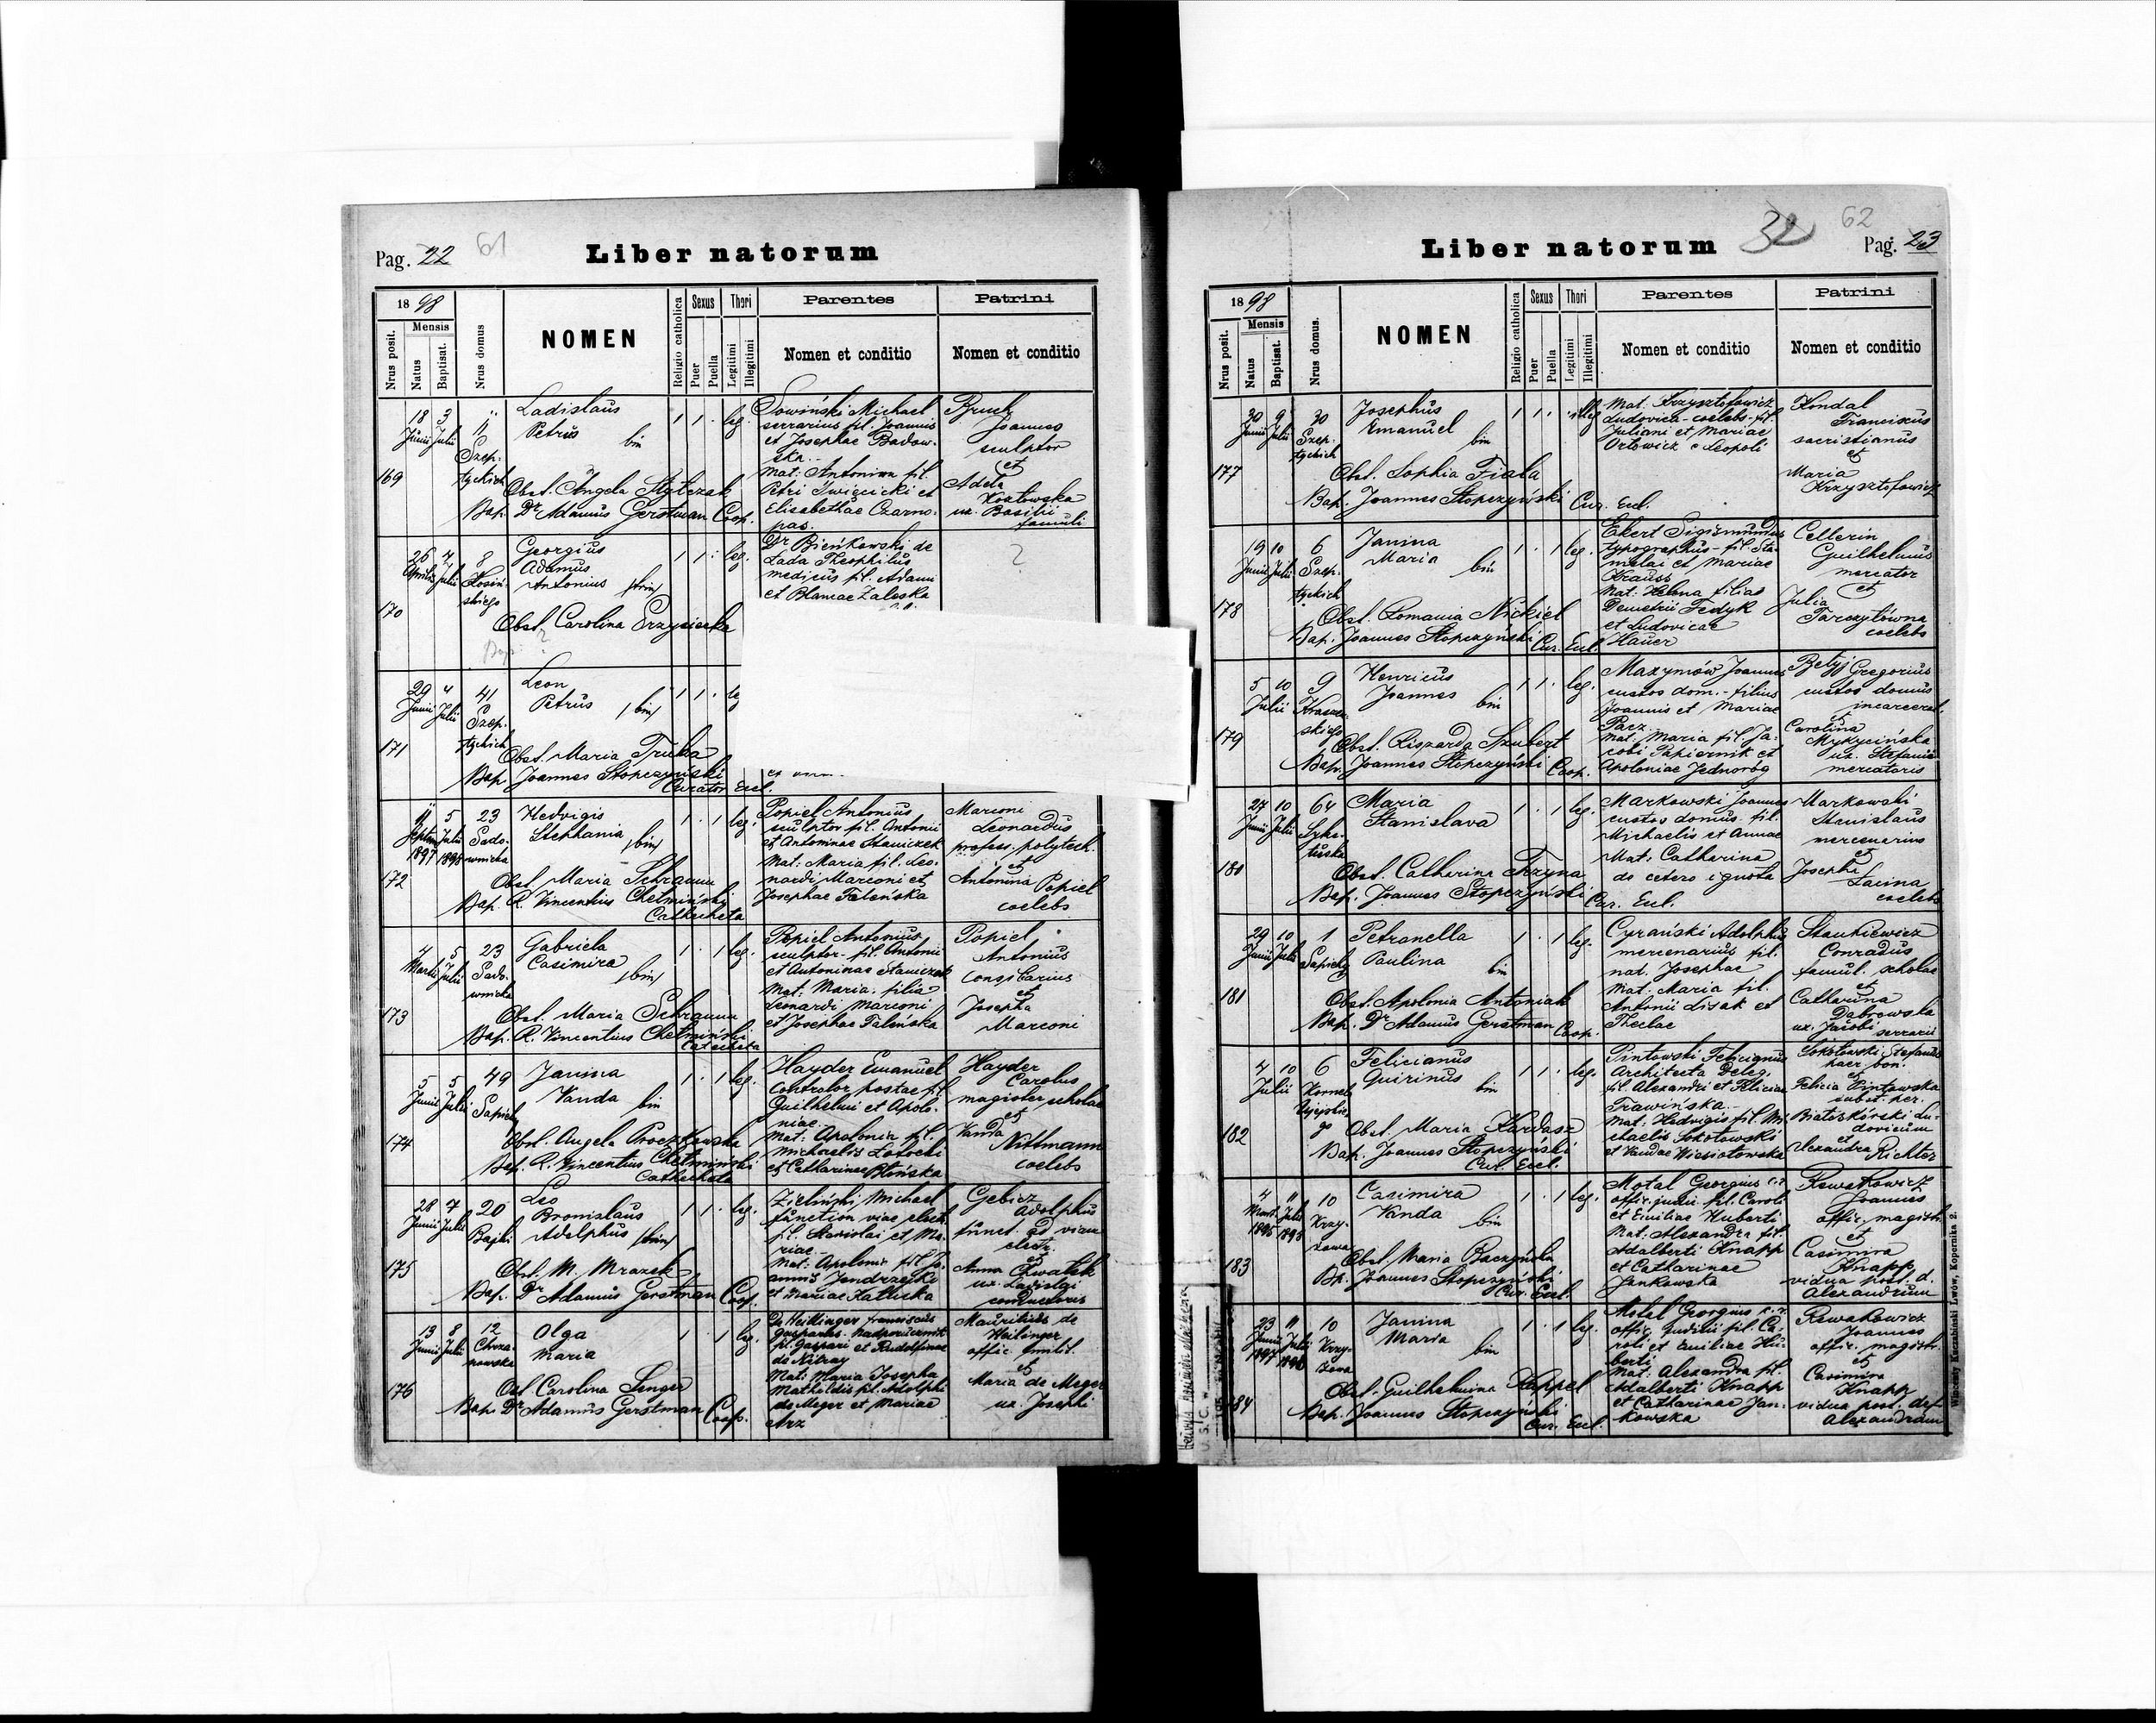 Pag. 22 61
Liber natorum
18 98
Mensis
Nrus posit.
Natus
Baptisat.
Nrus domus
NOMEN
Religio catholica
Sexus
Puer
Puella
Thori
Legitimi
Illegitimi
Parentes
Nomen et conditio
Patrini
Nomen et conditio
169
18 Junii
3 Julii
11 Szeptyckich
Ladislaus
Petrus
bin
1 1 leg.
Obst. Angela Stytczak
Bap. Dr Adamus Gerstman Coop.
Sowiński Michael
serrarius fil. Joannis
et Josephae Badow-
ska.
Mat: Antonina fil.
Petri Święcicki et
Elisabethae Czarno-
pas.
Bruch
Joannes
sculptor
et
Adela
Kozłowska
ux. Basilii
famuli
170
26 Aprilis
7 Julii
8 Kosińskiego
Georgius
Adamus
Antonius /trin/
1 1 leg.
Obst. Carolina
Bap. ?
Dr Bieńkowski de
Łada Theophilus
medicus fil. Adami
et Blancae Zaleska
?
171
29 Junii
4 Julii
41 Szeptyckich
Leon
Petrus /bin/
1 1 le
Obst. Maria Truka
Bap. Joannes Stopczyński
Curator Eccl.
172
11 Septem. 1897
5 Julii 1898
23 Sadownicka
Hedvigis
Stephania /bin/
1 1 leg.
Obst. Maria Schramm
Bap. R. Vincentius Chełmiński
Catecheta
Popiel Antonius
sculptor fil. Antonii
et Antoninae Stawiczek
Mat: Maria fil. Leo-
nardi Marconi et
Josephae Faleńska
Marconi
Leonardus
profess. polytech.
et
Antonina Popiel
coelebs
173
4 Martii
5 Julii
23 Sadownicka
Gabriela
Casimira /bin/
1 1 leg.
Obst. Maria Schramm
Bap. R. Vincentius Chełmiński
Catecheta
Popiel Antonius
sculptor - fil. Antonii
et Antoninae Stawiczek
Mat: Maria filia
Leonardi Marconi
et Josephae Faleńska
Popiel
Antonius
consiliarius
et
Josepha
Marconi
174
5 Junii
5 Julii
49 Sapiehy
Janina
Vanda bin
1 1 leg.
Obst. Angela Proczkowska
Bap. R. Vincentius Chełmiński
Cathecheta
Hayder Emanuel
Controlor postae fil.
Guilhelmi et Apolo-
niae.
Mat: Apolonia fil.
Michaelis Łotocki
et Catharinae Blińska
Hayder
Carolus
magister scholae
et
Vanda
Nittmann
coelebs
175
28 Junii
7 Julii
20 Bajki
Leo
Bronislaus
Adolphus /trin/
1 1 leg.
Obst. M. Mrazek
Bap. Dr Adamus Gerstman Coop.
Zieliński Michael
function viae electr.
fil. Stanislai et Ma-
riae
Mat: Apolonia fil. Jo-
annis Jendrzejko
et Mariae
Gebicz
Adolphus
funct. ad viam
electr.
Anna Chwałek
ux. Ladislai
conductoris
176
13 Junii
8 Julii
12 Chrzanowska
Olga
Maria
1 1 leg.
Obst. Carolina Senger
Bap. Dr Adamus Gerstman Coop.
Franciscus
fil. Gaspari et Rudolfinae
de
Mat: Maria Josepha
Mathildis fil. Adolphi
de Meger et Mariae
Arz
Mauritius de
offic. milit.
et
Maria de Meger
ux. Josephi
Liber natorum
32 62
Pag. 23
18 98
Mensis
Nrus posit.
Natus
Baptisat.
Nrus domus.
NOMEN
Religio catholica
Sexus
Puer
Puella
Thori
Legitimi
Illegitimi
Parentes
Nomen et conditio
Patrini
Nomen et conditio
177
30 Junii
9 Julii
30 Szeptyckich
Josephus
Emanuel
bin
1 1 illeg.
Obst. Sophia Fiala
Bap. Joannes Stopczyński Cur. Eccl.
Mat. Krzysztofowicz
Ludovica - coelebs - fil.
Juliani et Mariae
Orłowicz e Leopoli
Kondal
Franciscus
sacristianus
et
Maria
Krzysztofowicz
178
19 Junii
10 Julii
6 Szeptyckich
Janina
Maria bin
1 1 leg.
Obst. Romania Nickiel
Bap. Joannes Stopczyński Cur. Eccl.
Ekert Sigismundus
typographus - fil. Sta-
nislai et Mariae
Krauss
Mat: Helena filia
Demetrii Fedyk
et Ludovicae
Hauer
Cellerin
Guilhelmus
mercator
et
Julia
Tarczytówna
coelebs
179
5 Julii
10
9 Kraszewskiego
Henricus
Joannes
bin
1 1 leg.
Obst. Riszarda Szubert
Bap. Joannes Stopczyński Coop.
Maxymów Joannes
custos dom. - filius
Joannis et Mariae
Pacz
Mat: Maria fil. Ja-
cobi Papiernik et
Apoloniae Jednoróg
Betyj Gregorius
custos domus
incarcerat.
et
Carolina
Mykycińska
ux. Stefani
mercatoris
180
27 Junii
10 Julii
64 Sykstuska
Maria
Stanislava
1 1 leg.
Obst. Catharina Trzyna
Bap. Joannes Stopczyński
Cur. Eccl.
Markowski Joannes
custos domus fil.
Michaelis et Annae
Mat. Catharina
de cetero ignota
Markowski
Stanislaus
mercenarius
et
Josepha
Łacina
coelebs
181
29 Junii
10 Julii
1 Sapiehy
Petronella
Paulina
bin
1 1 leg.
Obst. Apolonia Antoniak
Bap. Dr Adamus Gerstman Coop.
Cyrański Adolphus
mercenarius fil.
nat. Josephae
Mat. Maria fil.
Antonii Lisak et
Theclae
Stankiewicz
Conradus
famul. scholae
et
Catharina
Dąbrowska
ux. Jacobi
serrarii
182
4 Julii
10
6 Kornela Ujejskiego
Felicianus
Quirinus bin
1 1 leg.
Obst. Maria Kardasz
Bap. Joannes Stopczyński
Cur. Eccl.
Pintowski Felicianus
Architecta Deleg.
fil. Alexandri et Feliciae
Trawińska.
Mat: Hedvigis fil. Mi-
chaelis Sokołowski
et Vandae Wiesiołowska
Sokołowski Stefanus
haer. bon.
et
Felicia Pintowska
Białoskórski Lu-
dovicus
et
Alexandra Richter
183
4 Mart. 1896
11 Julii 1898
10 Krzyżowa
Casimira
Vanda bin
1 1 leg.
Obst. Maria Baczyńska
Bp. Joannes Stopczyński
Cur. Eccl.
Motal Georgius c.r.
offic. judic. fil. Caroli
et Emiliae Huberti
Mat. Alexandra fil.
Adalberti Knapp
et Catharinae
Jankowska
Rewakowicz
Joannes
offic. magistr.
et
Casimira
Knapp
vidua post. d.
Alexandrum
184
23 Junii 1897
11 Julii 1898
10 Krzyżowa
Janina
Maria
bin
1 1 leg.
Obst. Guilhelmina Keppel
Bap. Joannes Stopczyński
Cur. Eccl.
Motal Georgius c.r.
offic. judicii fil. Ca-
roli et Emiliae Hu-
berti
Mat. Alexandra fil.
Adalberti Knapp
et Catharinae Jan-
kowska
Rewakowicz
Joannes
offic. magistr.
et
Casimira
Knapp
vidua post. def.
Alexandrum
Wincenty Kuczabiński Lwów, Kopernika 2.